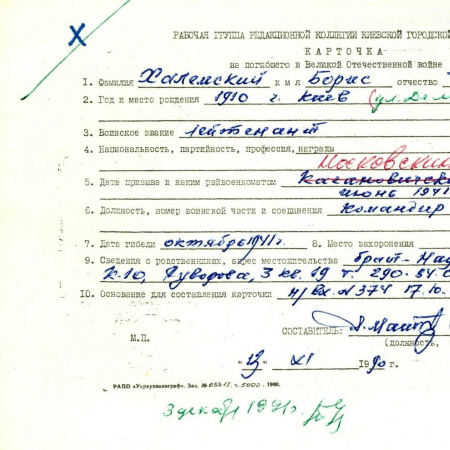 Х
РАБОЧАЯ ГРУППА РЕДАКЦИОННОЙ КОЛЛЕГИИ КИЕВСКОЙ ГОРОДСКОЙ
КАРТОЧКА
на погибшего в Великой Отечественной войне
1. Фамилия Халемский имя Борис отчество
2. Год и место рождения 1910 г. Киев (ул.
3. Воинское звание Лейтенант
4. Национальность, партийность, профессия, награды
Московским
5. Дата призыва и каким райвоенкоматом
июнь 1941
6. Должность, номер воинской части и соединения Командир
7. Дата гибели октябрь 1941 г. 8. Место захоронения
9. Сведения о родственниках, адрес местожительства брат -
К-10, Суворова, 3 кв. 19 т. 290-
10. Основание для составления карточки н/вх. № 374 17.10.
СОСТАВИТЕЛЬ:
М.П.
(должность,
"13" XI 1990 г.
РАПО «Укрвузполиграф». Зак. № т. 5000. 1990.
3 декабр 1991г.